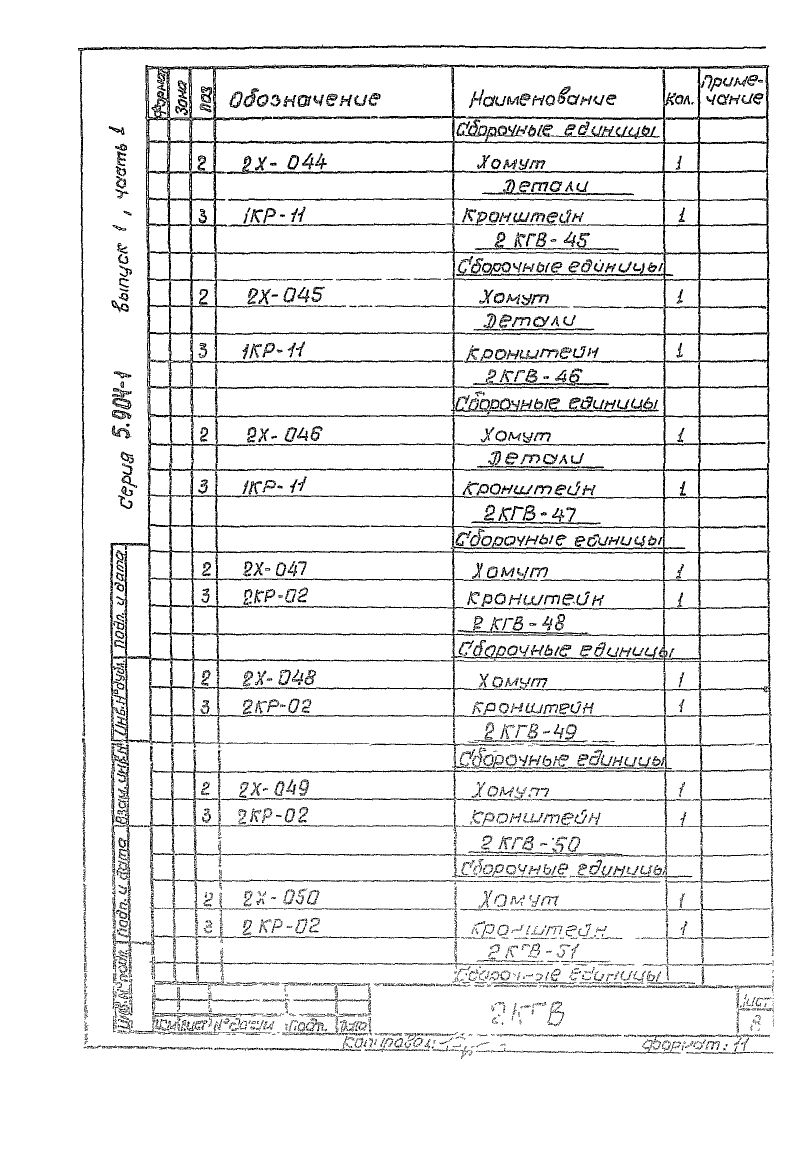 Серия 5.904-1 выпуск 1, часть 1
Формат Зона Поз Обозначение Наименование Кол. Приме-
чание
Сборочные единицы
2 2Х-044 Хомут 1
Детали
3 1КР-11 Кронштейн 1
2КГВ-45
Сборочные единицы
2 2Х-045 Хомут 1
Детали
3 1КР-11 Кронштейн 1
2КГВ-46
Сборочные единицы
2 2Х-046 Хомут 1
Детали
3 1КР-11 Кронштейн 1
2КГВ-47
Сборочные единицы
2 2Х-047 Хомут 1
3 2КР-02 Кронштейн 1
2КГВ-48
Сборочные единицы
2 2Х-048 Хомут 1
3 2КР-02 Кронштейн 1
2КГВ-49
Сборочные единицы
2 2Х-049 Хомут 1
3 2КР-02 Кронштейн 1
2КГВ-50
Сборочные единицы
2 2Х-050 Хомут 1
3 2КР-02 Кронштейн 1
2КГВ-51
Сборочные единицы
Инв.№ подл. Подп. и дата Взам. инв.№ Инв.№ дубл. Подп. и дата
2КГВ
Лист
Изм Лист № докум Подп. Дата
Копировал: Формат: 11